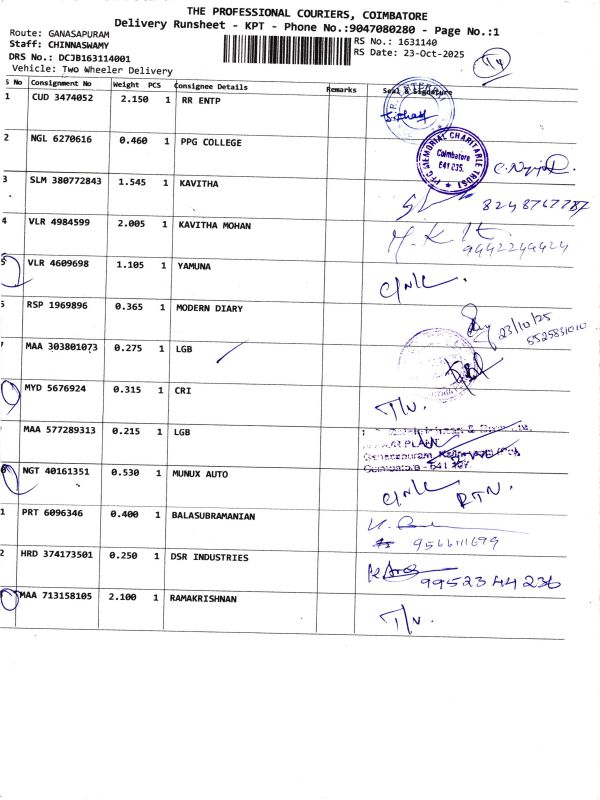 THE PROFESSIONAL COURIERS, COIMBATORE
Delivery Runsheet - KPT - Phone No.:9047080280 - Page No.:1
Route: GANASAPURAM
Staff: CHINNASWAMY
RS No.: 1631140
DRS No.: DCJB163114001
RS Date: 23-Oct-2025
Vehicle: Two Wheeler Delivery
S No Consignment No Weight PCS Consignee Details Remarks Seal & Signature
1 CUD 3474052 2.150 1 RR ENTP
2 NGL 6270616 0.460 1 PPG COLLEGE
MEMORIAL CHARITABLE TRUST
Coimbatore
641 035.
3 SLM 380772843 1.545 1 KAVITHA
8248767787
4 VLR 4984599 2.005 1 KAVITHA MOHAN
9442244424
5 VLR 4609698 1.105 1 YAMUNA
C/N/L
6 RSP 1969896 0.365 1 MODERN DIARY
23/10/25
5525831010
7 MAA 303801073 0.275 1 LGB
MYD 5676924 0.315 1 CRI
T/V.
MAA 577289313 0.215 1 LGB
PLANT
Coimbatore - 641 107.
NGT 40161351 0.530 1 MUNUX AUTO
C/N/L RTN.
1 PRT 6096346 0.400 1 BALASUBRAMANIAN
9566111699
2 HRD 374173501 0.250 1 DSR INDUSTRIES
9952344236
MAA 713158105 2.100 1 RAMAKRISHNAN
T/V.